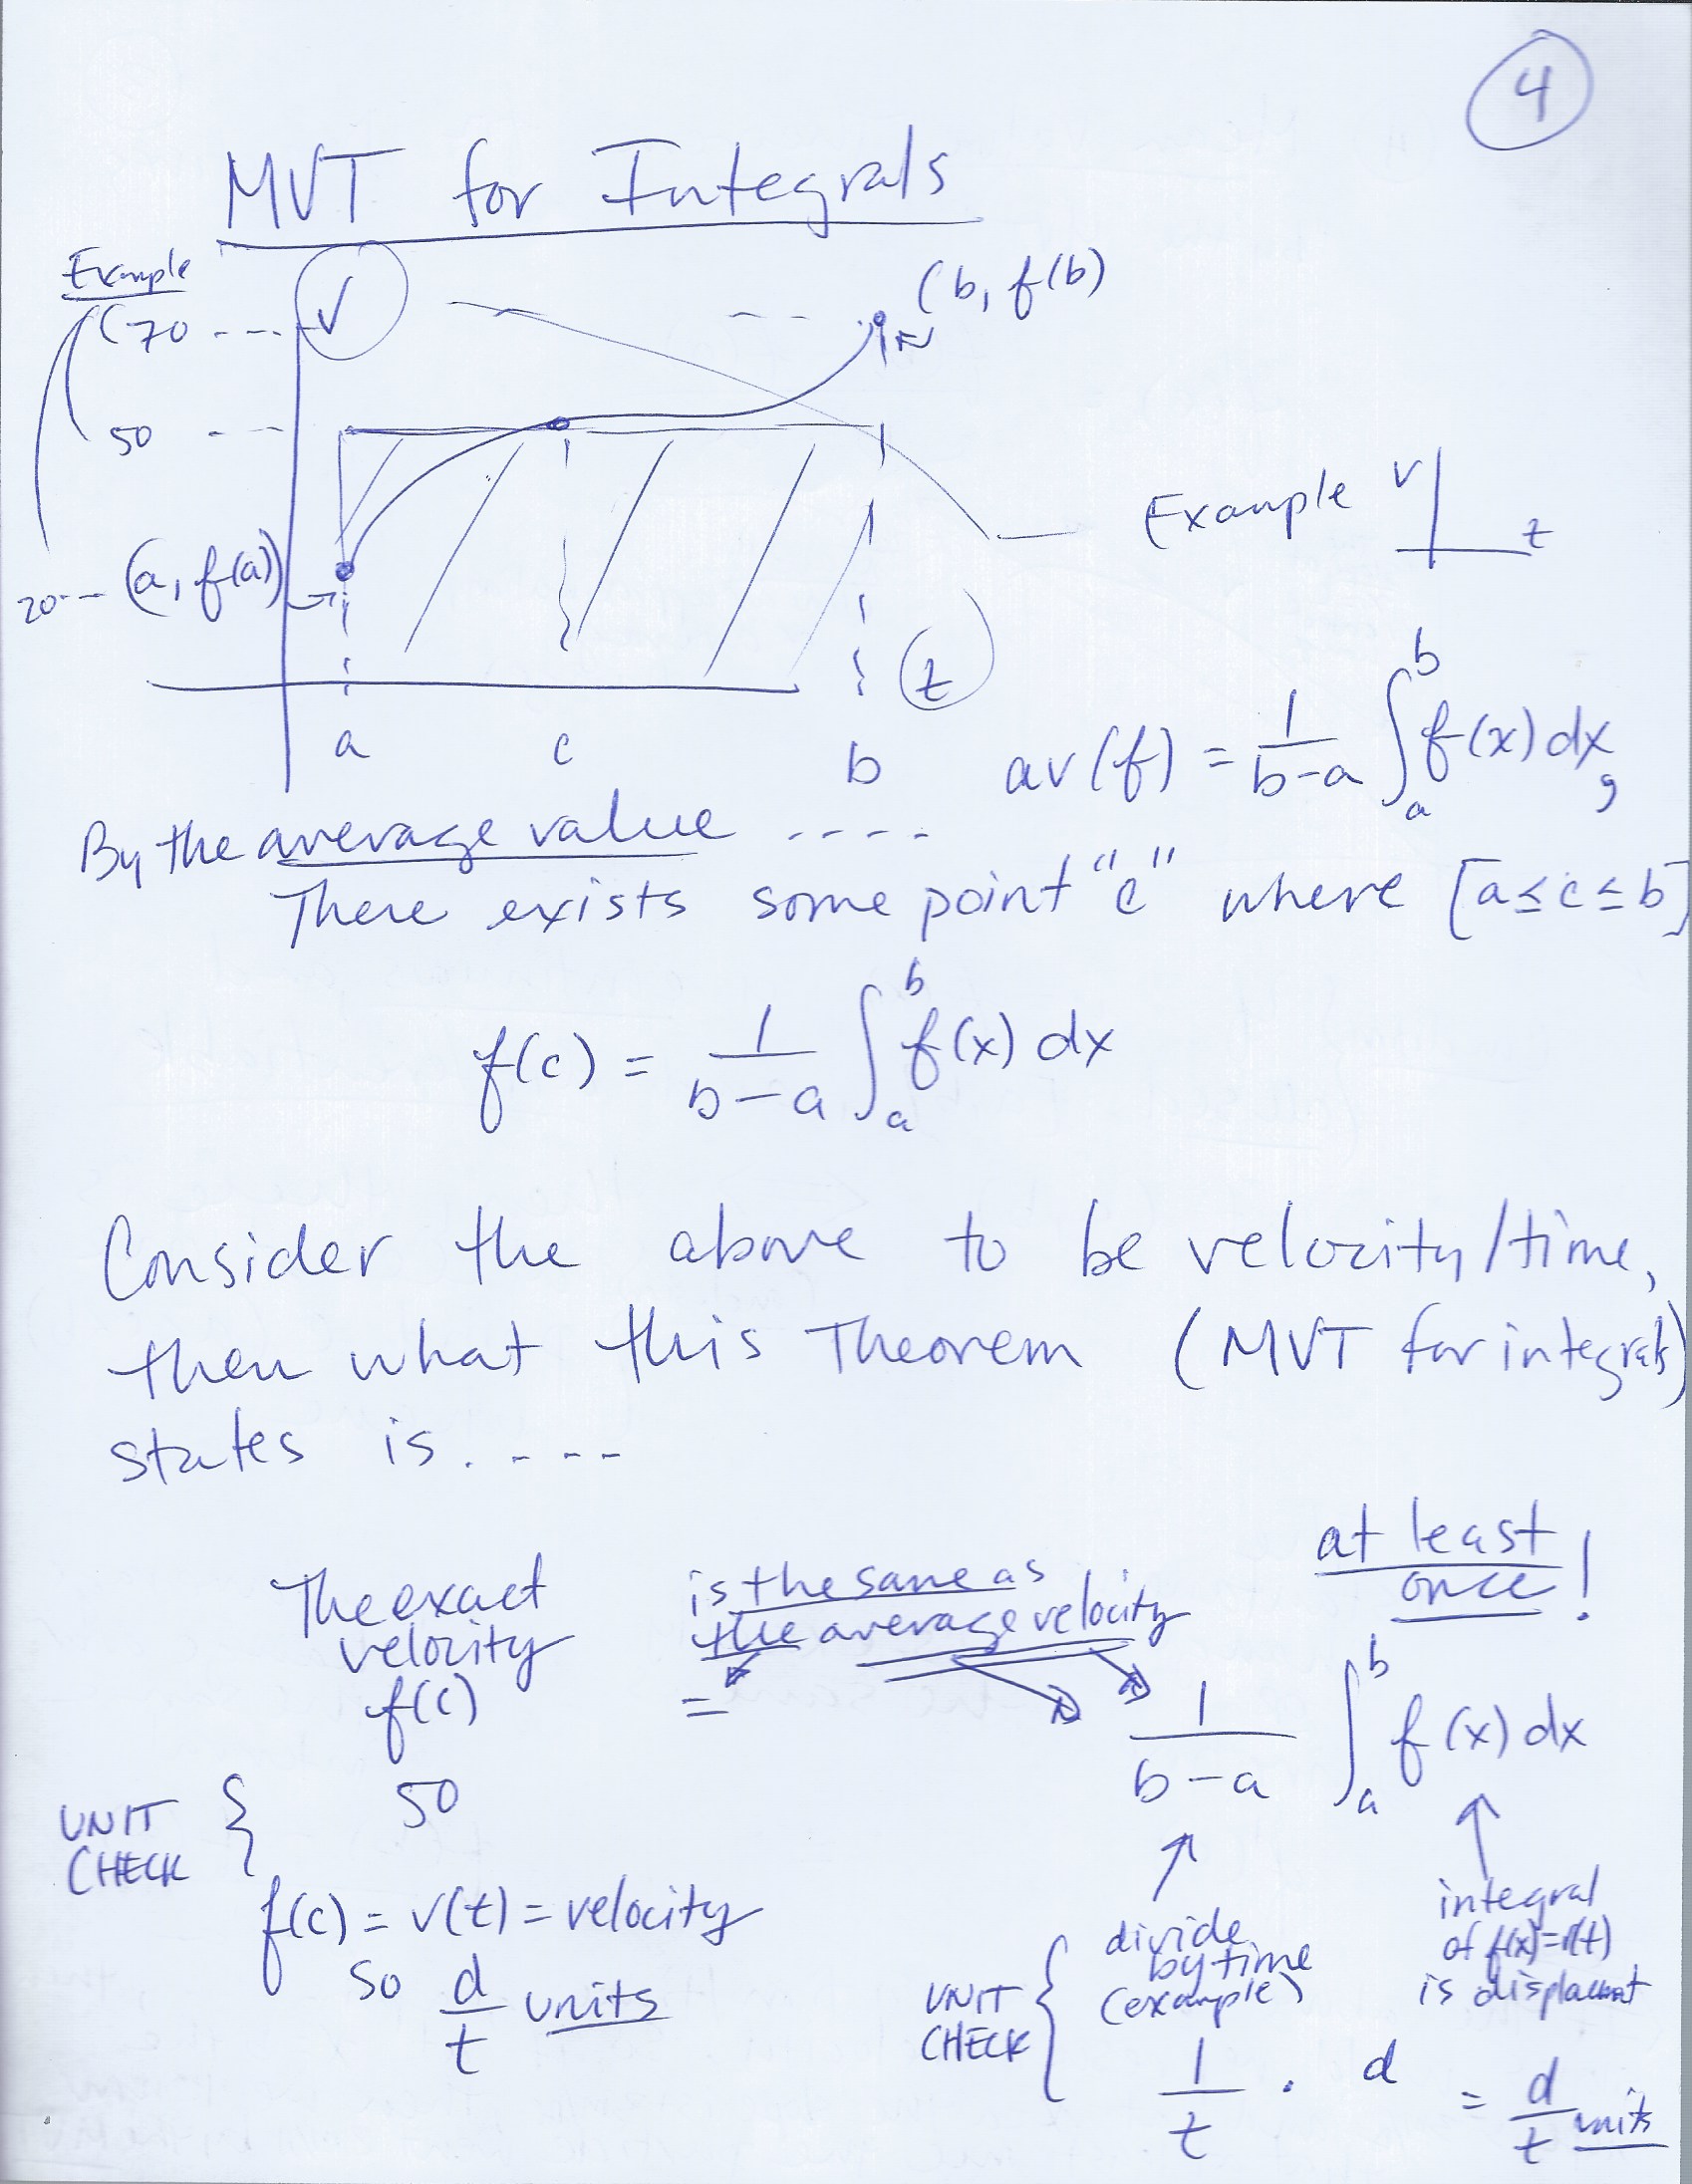 4
MVT for Integrals
Example
(70 ---
V
(b, f(b)
50 ---
Example V
t
20--- (a, f(a))
t
a c b
av(f) = 1/(b-a) ∫_a^b f(x) dx,
By the average value ----
There exists some point "c" where [a≤c≤b]
f(c) = 1/(b-a) ∫_a^b f(x) dx
Consider the above to be velocity/time,
then what this Theorem (MVT for integrals)
states is.----
at least
once!
The exact
velocity
is the same as
the average velocity
f(c) = 1/(b-a) ∫_a^b f(x) dx
50
UNIT
CHECK
f(c) = v(t) = velocity
so d/t units
UNIT
CHECK
divide
by time
(example)
integral
of f(x)=v(t)
is displacement
1/t · d = d/t units